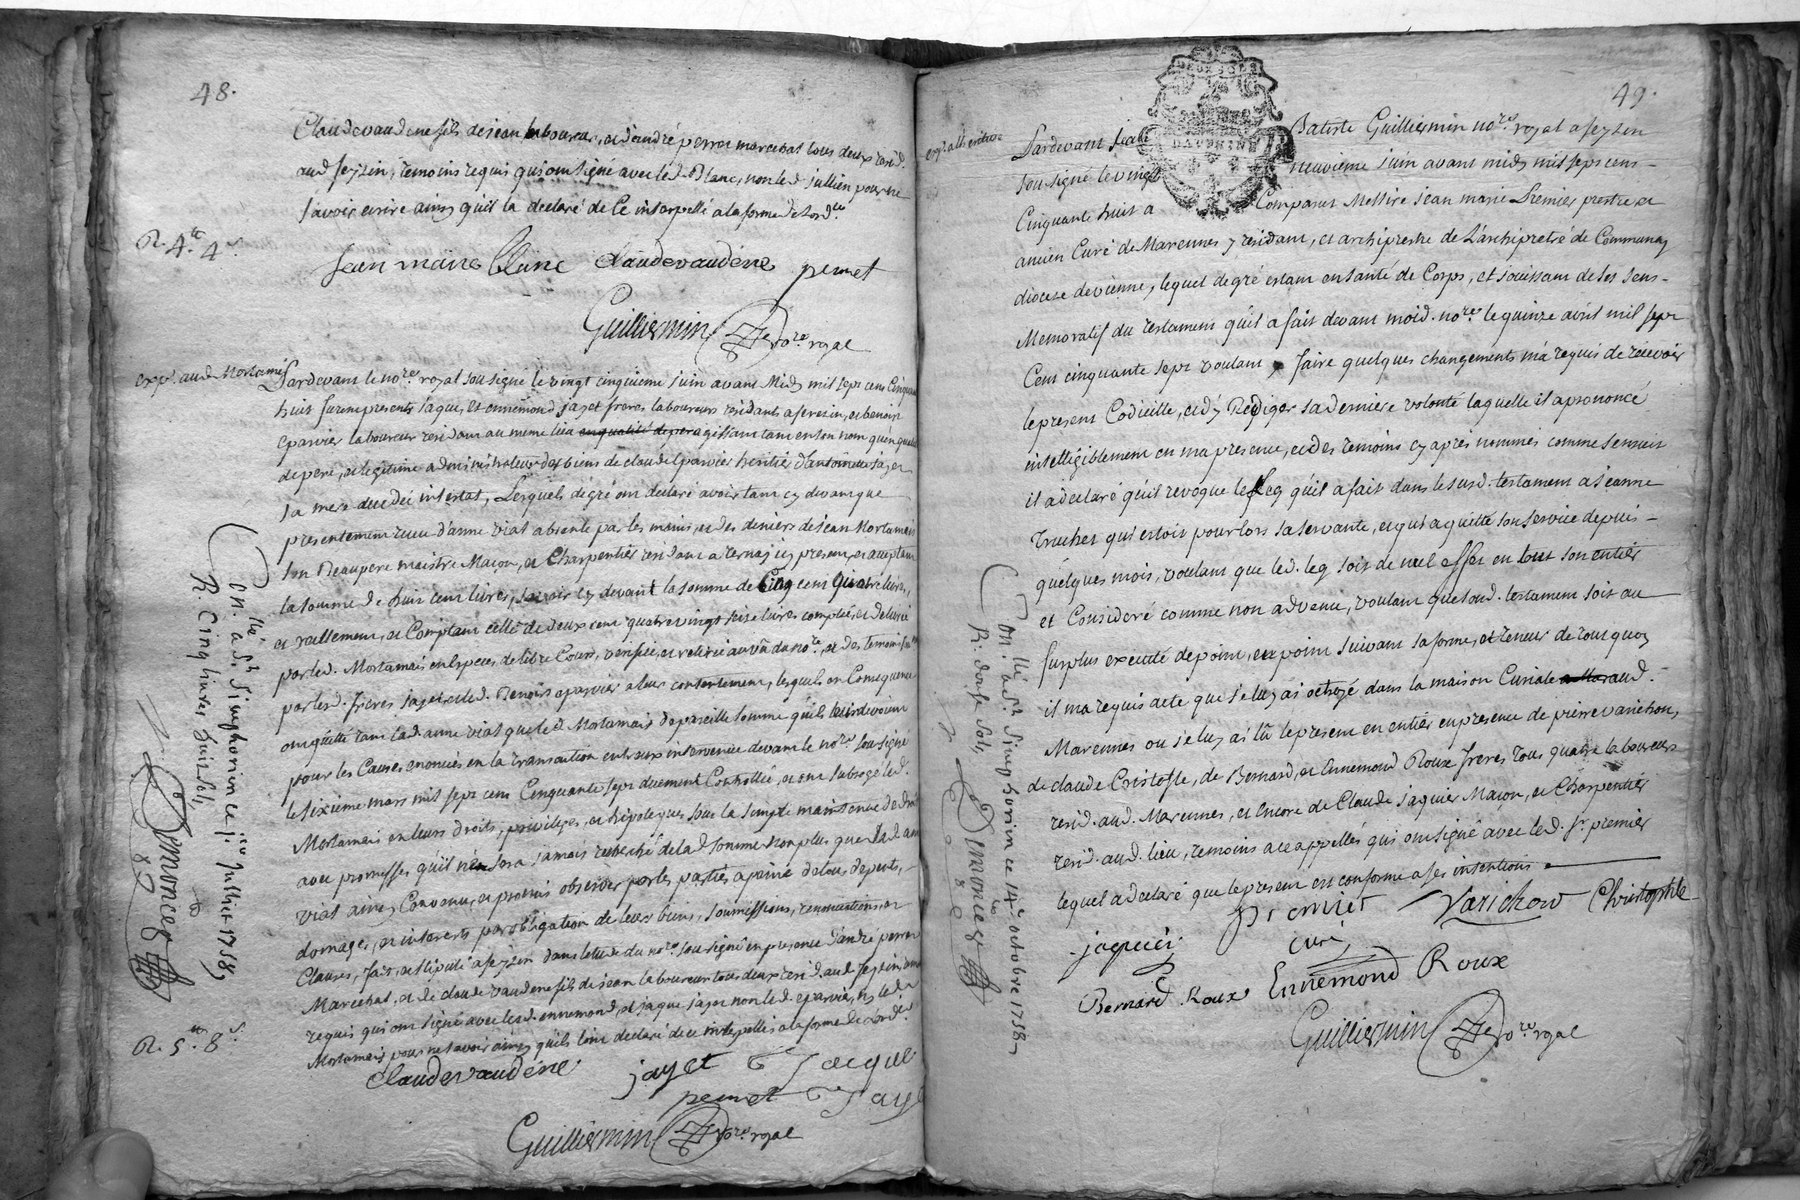 48.
Claude vaudene fils de jean laboureur, et d'andré perret marechat tous deux resid.
aud. seyzin, temoins requis qui ont signé avec led. Blanc, non led. jullien pour ne
sçavoir ecrire ainsy qu'il la declaré de ce interpellé a la forme de l'ord.ce
R. 4.tt 4.s
jean marie blanc claude vaudéne perret
Guilliermin no.re royal
exp.é aud. Mortamais
Pardevant le no.re royal soussigné le vingt cinquieme juin avant Midy mil sept cens Cinquante
huit furent presents jaque, et ennemond jayet freres laboureurs residants a serezin, et benoit
eparvier laboureur residant au meme lieu en qualité de per agissant tant en son nom qu'en qualité
de pere, et legitime administrateur des biens de claude Eparvier heritier d'antoinette jayet
sa mere decedée intestat, Lesquels de gré ont declaré avoir tant cy devant que
presentement receu d'anne viat absente par les mains, et des deniers de jean Mortamais
son Beaupere maistre Maçon, et Charpentier residant a ternay icy present, et acceptant
la somme de huit cent livres, sçavoir cy devant la somme de Cinq cent quatre livres,
et reellement, et Comptant celle de deux cent quatre vingt seize livres comptée, et delivrée
par led. Mortamais en Especes de libre Cours, verifiée, et retirée au vû du no.re, et des temoins
par lesd. freres jayet, et led. Benoit eparvier a leur contentement, lesquels en Consequence
ont quitté tant lad. anne viat que led. Mortamais de pareille somme qu'ils leur devoient
pour les Causes enoncées en la transaction entr'eux intervenüe devant le no.re soussigné
le sixieme mars mil sept cent Cinquante sept duement Controllée, et ont subrogé led.
Mortamais en leurs droits, privileges, et hipoteques sous la simple maintenue de droit
avec promesses qu'il n'en sera jamais recherché de lad. somme non plus que lad. anne
viat ainsy Convenu, et promis observer par les parties a peine de tous depents,
domages, et interests par obligation de leurs biens, soumissions, renonciations, et
Clauses, fait, et stipulé a seyzin dans letude du no.re soussigné en presence d'andré perret
Marechat, et de claude vaudene fils de jean laboureur tous deux resid. aud. seyzin temoins
requis qui ont signé avec lesd. ennemond, et jaque jayet non led. eparvier, ny led.
Mortamais pour ne sçavoir ainsy qu'ils l'ont declaré de ce interpellés a la forme de l'ord.ce
R. 5.tt 8.s
claude vaudéne jayet jacque
perret jayet
Guilliermin no.re royal
Con.llé a S.t Simphorien ce j.er Juillet 1758,
R. Cinq livres huit sols,
Demonceg
49.
DEUX SOLS
DAUPHINE
exp.é a lh eritiere
Pardevant Jean Batiste Guilliermin no.re royal a seyzin
soussigné le vingt neuvieme juin avant midy mil sept cens
Cinquante huit a Comparut Messire jean marie Premier prestre et
ancien Curé de Marennes y residant, et archiprestre de L'archipretré de Communay
diocese de vienne, lequel de gré estant en santé de Corps, et joüissant de ses sens
Memoratif du testament qu'il a fait devant moid. no.re le quinze avril mil sept
Cent cinquante sept voulant y faire quelques changements m'a requis de recevoir
le present Codicille, et d'y Rediger sa derniere volonté laquelle il a prononcé
intelligiblement en ma presence, et des temoins cy aprés nommés comme s'ensuit
il a declaré qu'il revoque le leg qu'il a fait dans le susd. testament a jeanne
Truchet qui estoit pour lors sa servante, et qui a quitté son service depuis
quelques mois, voulant que led. leg soit de nuel effet en tout son entier
et Consideré comme non advenu, voulant que sond. testament soit au
surplus executé de point, en point suivant sa forme, et teneur de tout quoy
il ma requis acte que je luy ai octroyé dans la maison Curiale a Mar aud.
Marennes ou je luy ai lû le present en entier en presence de pierre varichon,
de claude Cristofle, de Bernard, et Ennemond Roux freres tous quatre laboureurs
resid. aud. Marennes, et encore de Claude jaquier Maçon, et Charpentier
resid. aud. lieu, temoins a ce appellés qui ont signé avec led. S.r premier
lequel a declaré que le present est conforme a ses intentions
Premier Varichon Christophle
jaquier curé
Bernard Roux Ennemond Roux
Guilliermin no.re royal
Con.llé a S.t Simphorien ce 14.e octobre 1758,
R. douze sols,
Demonceg